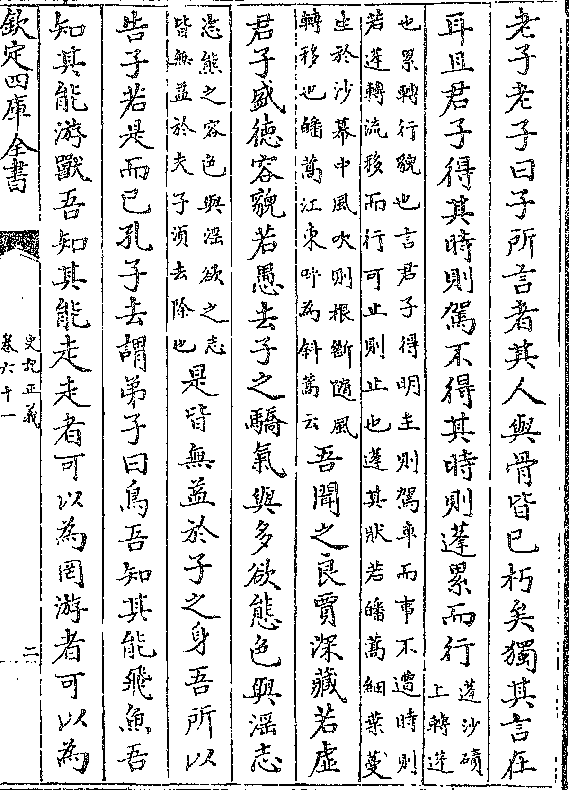 老子老子曰子所言者其人與骨皆已朽矣獨其言在
耳且君子得其時則駕不得其時則蓬累而行
蓬沙磧
上轉蓬
也累轉行貌也言君子得明主則駕車而事不遭時則
若蓬轉流移而行可止則止也蓬其狀若皤蒿細葉蔓
生於沙幕中風吹則根斷隨風
轉移也皤蒿江東呼為斜蒿云
吾聞之良賈深藏若虛
君子盛徳容貌若愚去子之驕氣與多欲態色與淫志
恣態之容色與淫欲之志
皆無益於夫子須去除也
是皆無益於子之身吾所以
告子若是而已孔子去謂弟子曰鳥吾知其能飛魚吾
知其能游獸吾知其能走走者可以為罔游者可以為
欽定四庫全書
史記正義
卷六十一
二